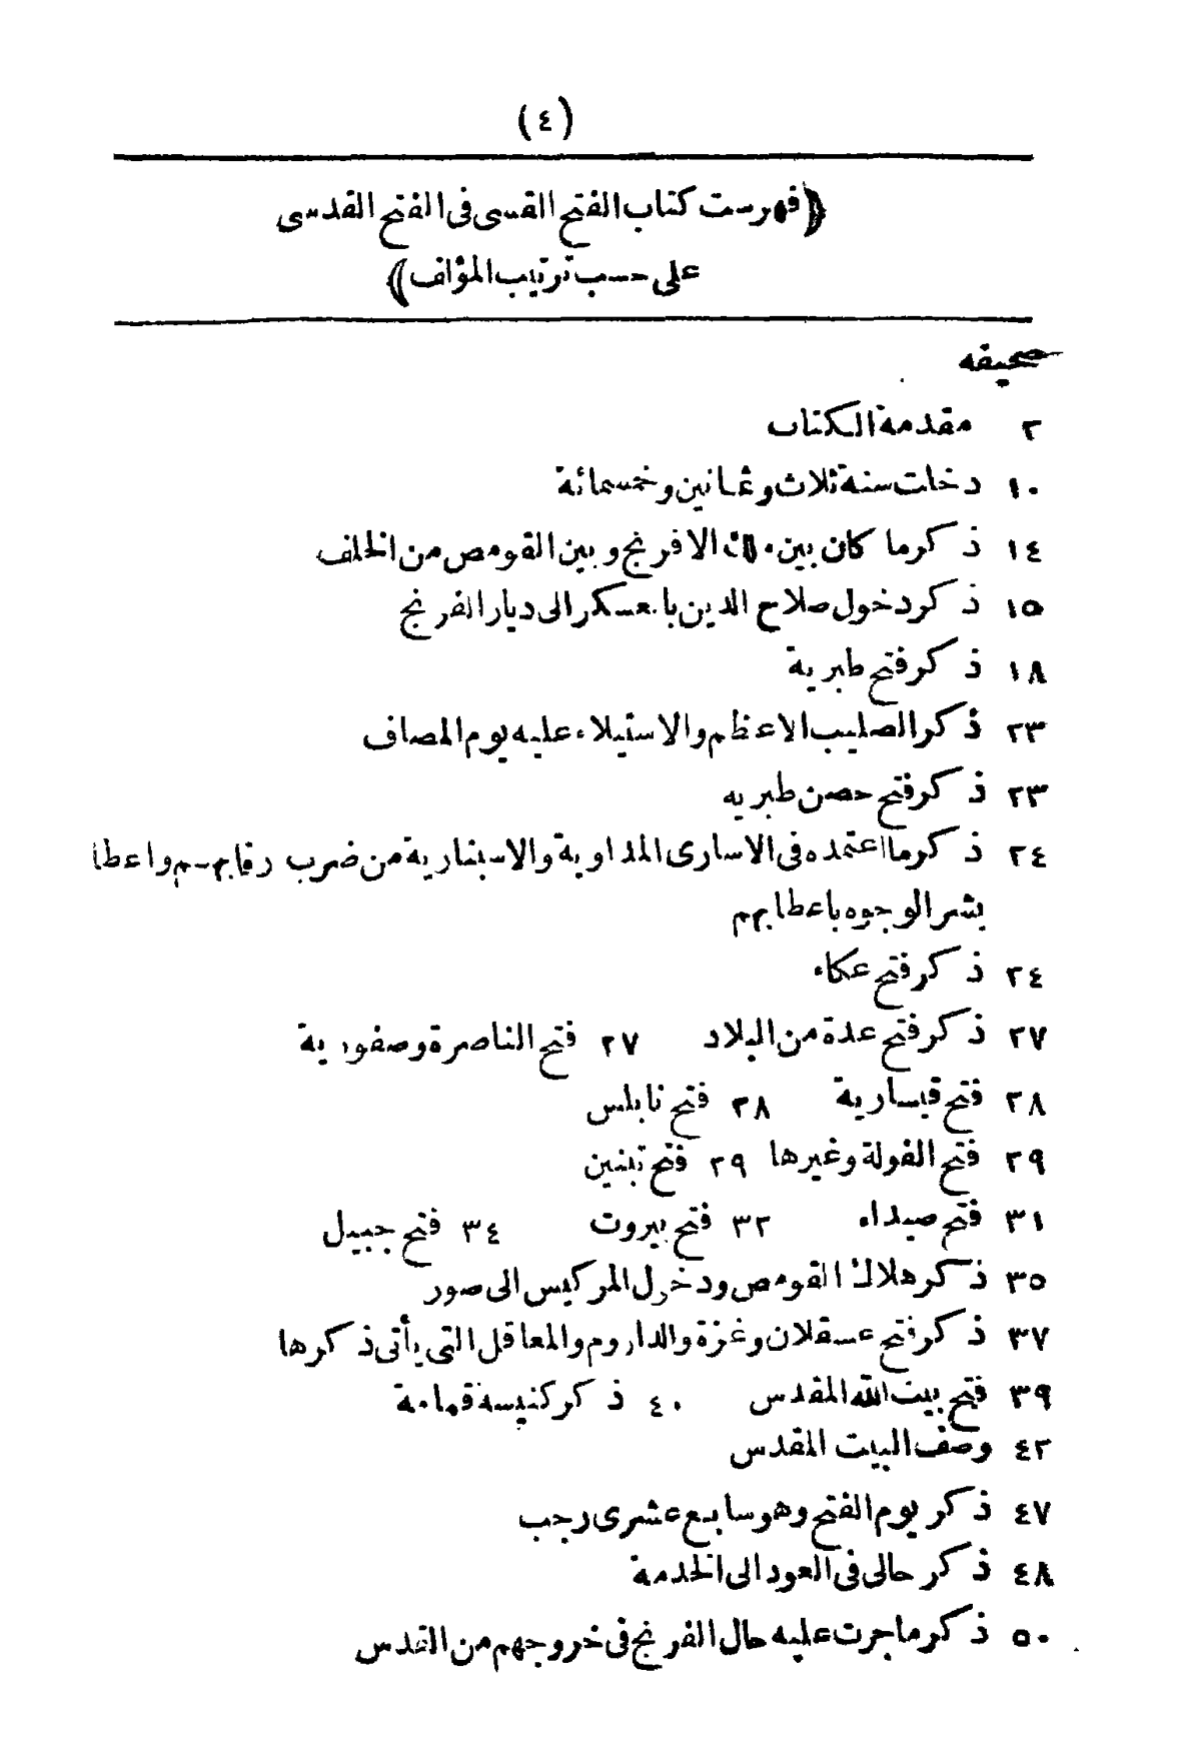 (٤)
﴿فهرست كتاب الفتح القسى فى الفتح القدسى
على حسب ترتيب المؤلف﴾
صحيفه
٢ مقدمة الكتاب
١٠ دخلت سنة ثلاث وثمانين وخمسمائة
١٤ ذكر ما كان بين ملك الافرنج وبين القومص من الخلف
١٥ ذكر دخول صلاح الدين بالعسكر الى ديار الفرنج
١٨ ذكر فتح طبرية
٢٣ ذكر الصليب الاعظم والاستيلاء عليه يوم المصاف
٢٣ ذكر فتح حصن طبريه
٢٤ ذكر ما اعتمده فى الاسارى الداوية والاسبتارية من ضرب رقابهم واعطا
بشر الوجوه باعطابهم
٢٤ ذكر فتح عكاء
٢٧ ذكر فتح عدة من البلاد ٢٧ فتح الناصرة وصفورية
٢٨ فتح قيسارية ٢٨ فتح نابلس
٢٩ فتح الفولة وغيرها ٢٩ فتح تبنين
٣١ فتح صيداء ٣٢ فتح بيروت ٣٤ فتح جبيل
٣٥ ذكر هلاك القومص ودخول المركيس الى صور
٣٧ ذكر فتح عسقلان وغزة والداروم والمعاقل التى يأتى ذكرها
٣٩ فتح بيت الله المقدس ٤٠ ذكر كنيسة قمامة
٤٢ وصف البيت المقدس
٤٧ ذكر يوم الفتح وهو سابع عشرى رجب
٤٨ ذكر حالى فى العود الى الخدمة
٥٠ ذكر ما جرت عليه حال الفرنج فى خروجهم من القدس